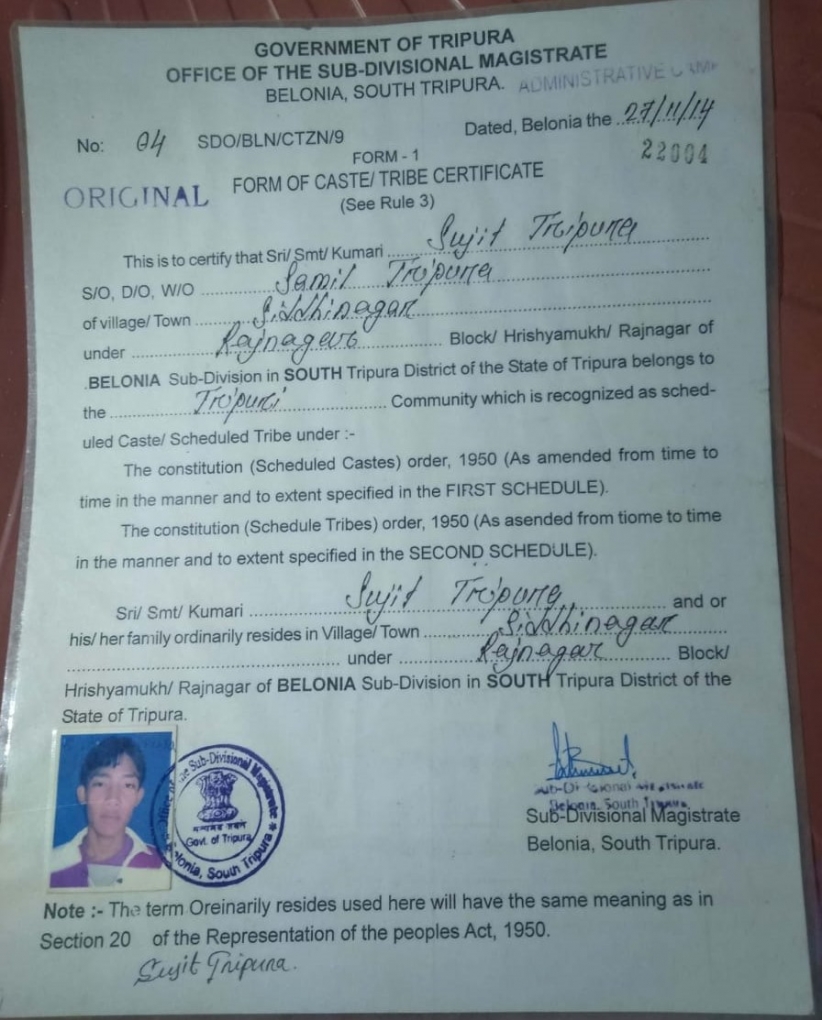 GOVERNMENT OF TRIPURA
OFFICE OF THE SUB-DIVISIONAL MAGISTRATE
BELONIA, SOUTH TRIPURA. ADMINISTRATIVE CAMP
No: 04 SDO/BLN/CTZN/9 Dated, Belonia the 27/11/14
FORM - 1 22004
ORIGINAL FORM OF CASTE/ TRIBE CERTIFICATE
(See Rule 3)
This is to certify that Sri/ Smt/ Kumari Sujit Tripura
S/O, D/O, W/O Samil Tripura
of village/ Town Siddhinagar
under Rajnagar Block/ Hrishyamukh/ Rajnagar of
BELONIA Sub-Division in SOUTH Tripura District of the State of Tripura belongs to
the Tripuri Community which is recognized as sched-
uled Caste/ Scheduled Tribe under :-
The constitution (Scheduled Castes) order, 1950 (As amended from time to
time in the manner and to extent specified in the FIRST SCHEDULE).
The constitution (Schedule Tribes) order, 1950 (As asended from tiome to time
in the manner and to extent specified in the SECOND SCHEDULE).
Sri/ Smt/ Kumari Sujit Tripura and or
his/ her family ordinarily resides in Village/ Town Siddhinagar
under Rajnagar Block/
Hrishyamukh/ Rajnagar of BELONIA Sub-Division in SOUTH Tripura District of the
State of Tripura.
Office of the Sub-Divisional Magistrate
सत्यमेव जयते
Govt. of Tripura
Belonia, South Tripura
Sub-Divisional Magistrate
Belonia, South Tripura
Sub-Divisional Magistrate
Belonia, South Tripura.
Note :- The term Oreinarily resides used here will have the same meaning as in
Section 20 of the Representation of the peoples Act, 1950.
Sujit Tripura.